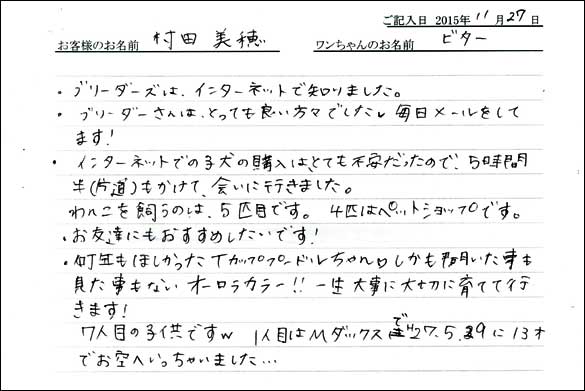 ご記入日 2015年 11月27日
お客様のお名前 村田 美穂 ワンちゃんのお名前 ビター
・ブリーダーズは、インターネットで知りました。
・ブリーダーさんは、とっても良い方々でした♥ 毎日メールをして
ます!
・インターネットでの子犬の購入は、とても不安だったので、5時間
半(片道)もかけて、会いに行きました。
わんこを飼うのは、5匹目です。 4匹はペットショップです。
・お友達にもおすすめしたいです!
・何年もほしかったTカッププードルちゃん♥しかも聞いた事も
見た事もない オーロラカラー!! 一生大事に大切に育てて行
きます!
7人目の子供ですw 1人目はMダックスで 27.5.29に13才
でお空へいっちゃいました…